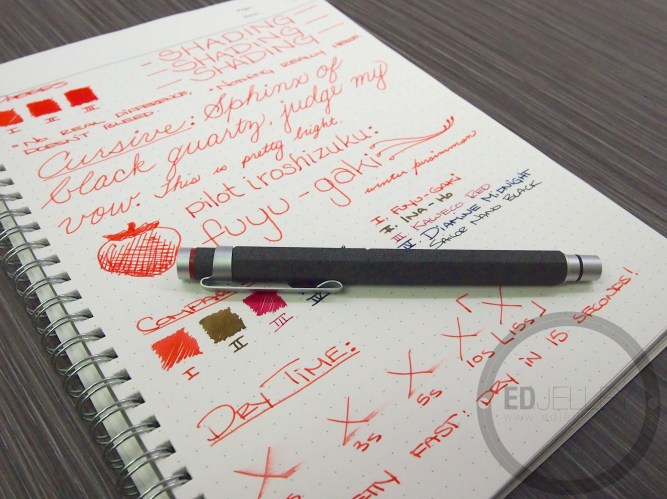 - SHADING -
- SHADING -
- SHADING -
I II III
• NO REAL DIFFERENCE, • NOTHING REALLY
DOESN'T BLEED.
Cursive: Sphinx of
black quartz, judge my
vow. This is pretty bright.
pilot iroshizuku:
fuyu-gaki
winter persimmon
I. FUYU-GAKI
II. INA-HO
III KAWECO RED
IV. DIAMINE MIDNIGHT
SAILOR NANO BLACK
I II III
DRY TIME:
3s 5s 10s 15s
FAST. DRY IN 15 SECONDS!
EDJELLEY